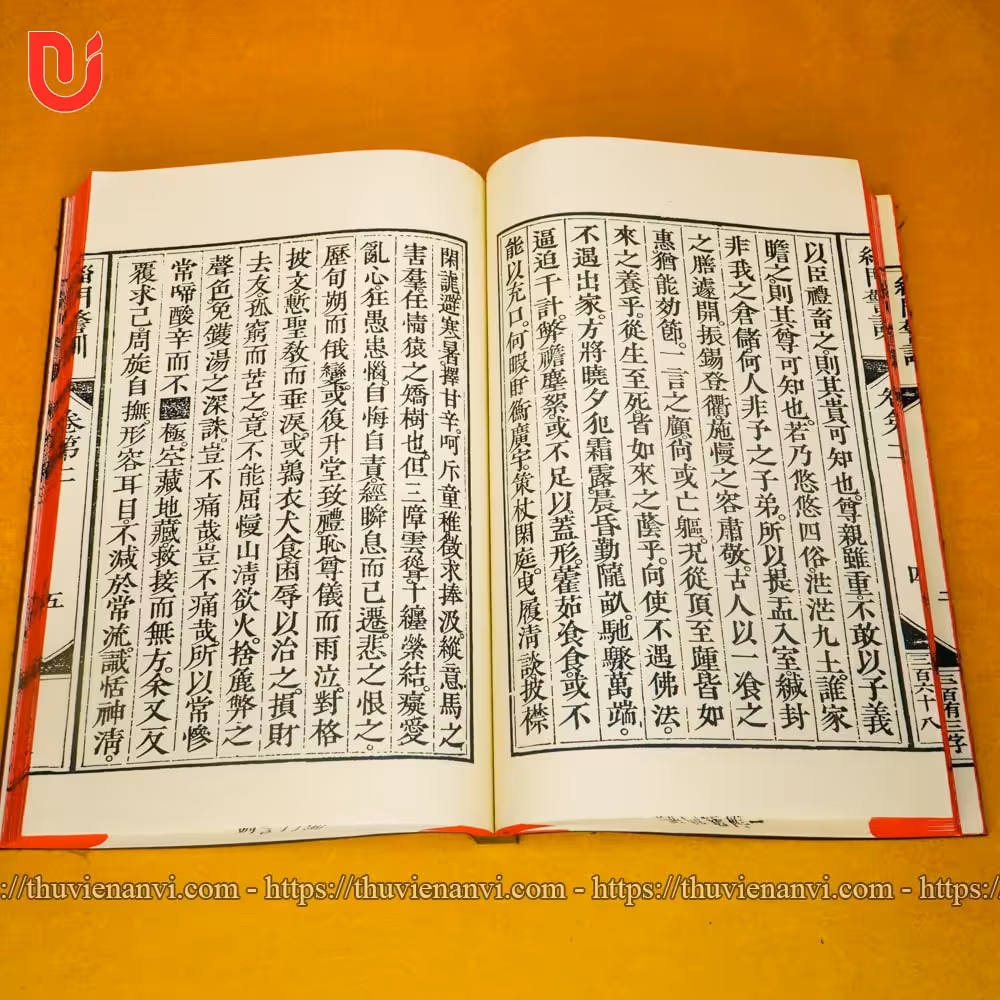 以臣禮畜之則其貴可知也。尊親雖重不敢以子義
瞻之。則其尊可知也。若乃悠悠四俗茫茫九土。誰家
非我之倉儲何人非子之子弟。所以提盂入室緘封
之膳遽開。振錫登衢施慢之容肅敬。古人以一飡之
惠猶能効節。一言之顧尚或亡軀。况從頂至踵皆如
來之養乎。從生至死皆如來之蔭乎。向使不遇佛法。
不遇出家。方將曉夕犯霜露晨昏勤隴畝。馳驟萬端。
逼迫千計。弊襜塵絮。或不足以蓋形。藿茹飡食。或不
能以充口。何暇盱衡廣宇。策杖閑庭。曳履清談披襟
閑謔避寒暑擇甘辛。呵斥童稚徵求捧汲。縱意馬之
害羣。任情猿之矯樹也。但三障雲聳十纏縈結。癡愛
亂心狂愚患惱。自悔自責。經瞬息而已遷。悲之恨之。
歷旬朔而俄變。或復升堂致禮。恥尊儀而雨泣。對格
披文慙聖教而垂淚。或鶉衣犬食困辱以治之。損財
去友孤窮而苦之。竟不能屈慢山清欲火。捨麁弊之
聲色免鑊湯之深誅。豈不痛哉。豈不痛哉。所以常慘
常啼酸辛而不極。空藏地藏救接而無方。余又反
覆求己。周旋自撫。形容耳目。不減於常流。識悟神清。
緇門警訓
卷第二
五
三百六十八
三百有三字
https://thuvienanvi.com - https://thuvienanvi.com - https://thuvienanvi.com - https://